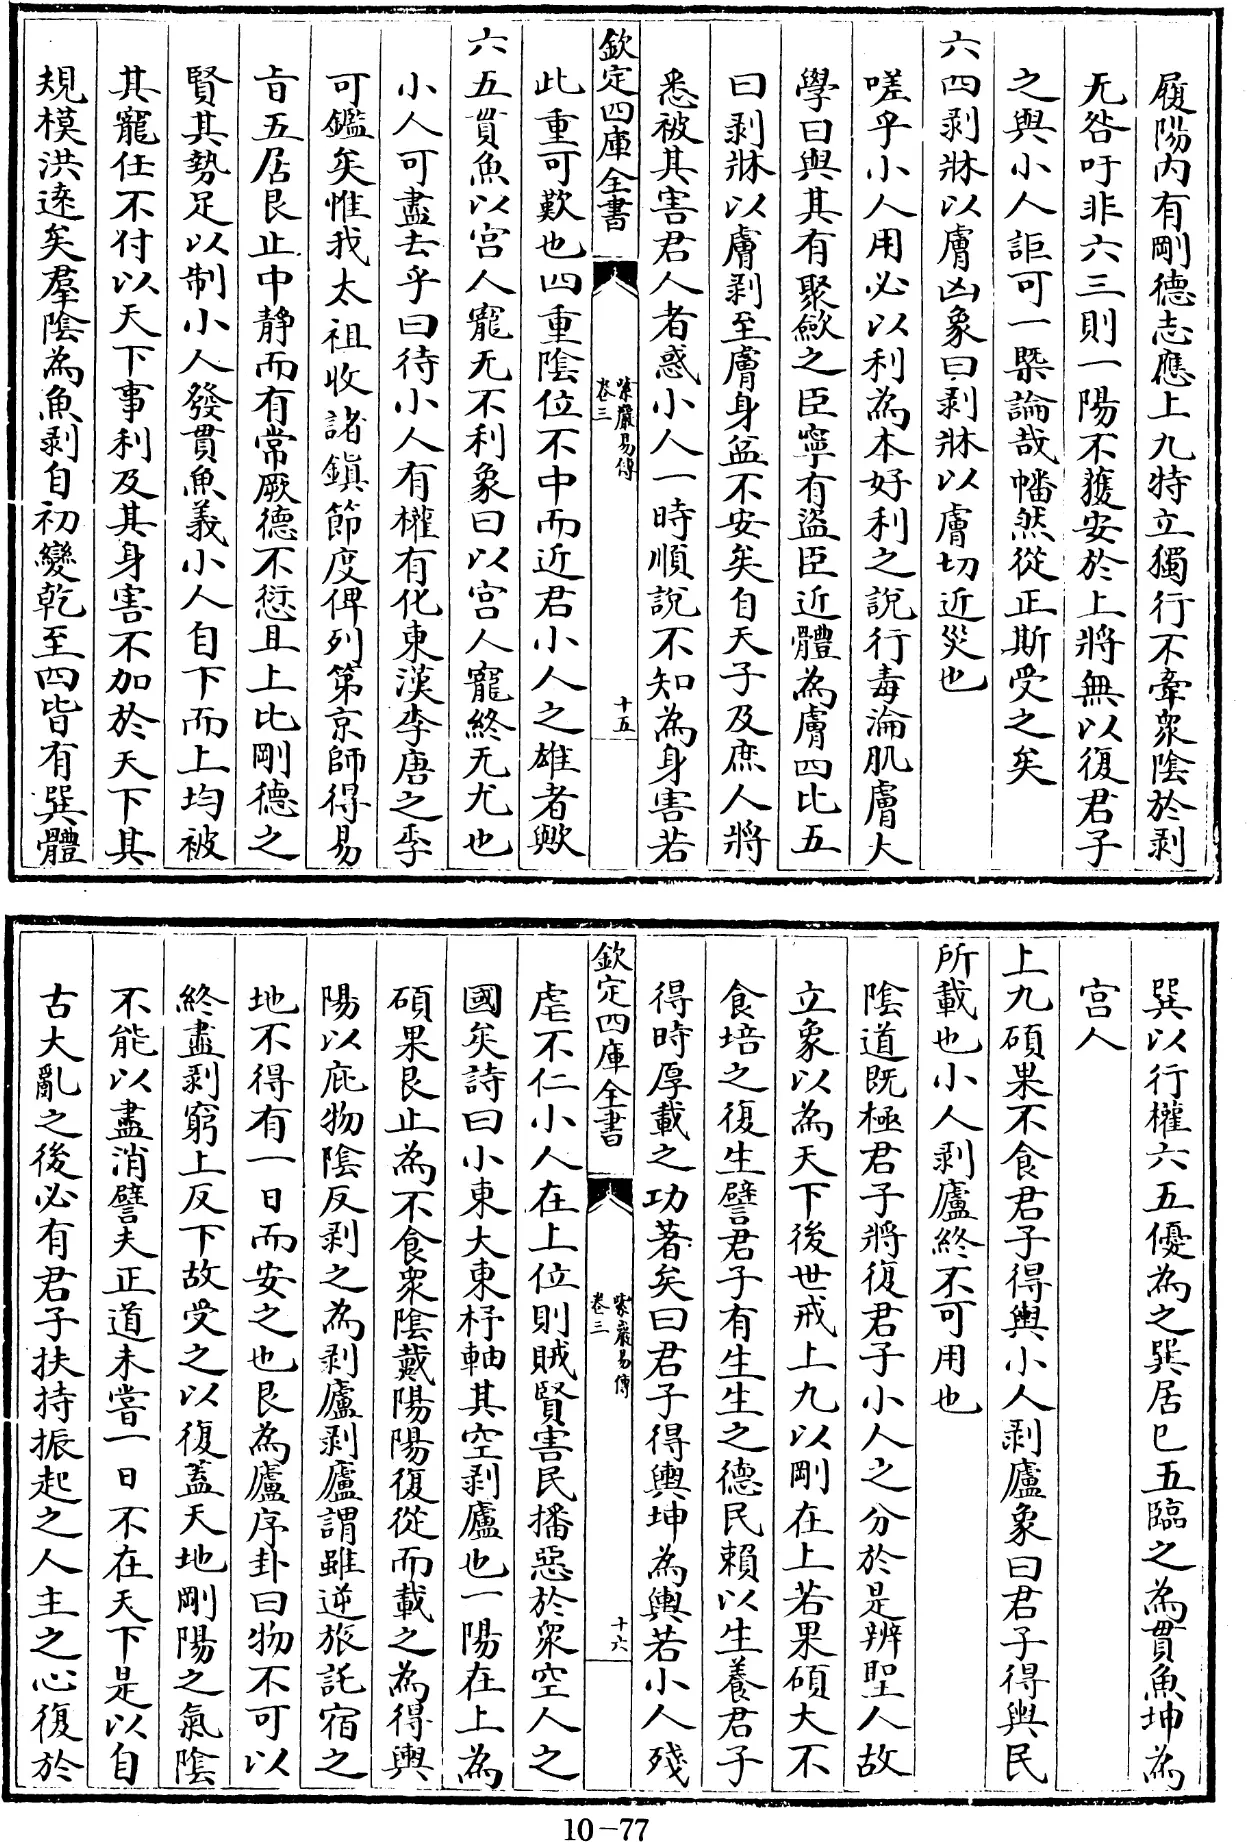 履陽内有剛德志應上九特立獨行不牽衆陰於剥
无咎吁非六三則一陽不獲安於上將無以復君子
之與小人詎可一槩論哉幡然從正斯受之矣
六四剥牀以膚凶象曰剥牀以膚切近災也
嗟乎小人用必以利為本好利之說行毒淪肌膚大
學曰與其有聚斂之臣寧有盜臣近體為膚四比五
曰剥牀以膚剥至膚身盆不安矣自天子及庶人將
悉被其害君人者惑小人一時順說不知為身害若
欽定四庫全書
紫巖易傳
卷三
十五
此重可歎也四重陰位不中而近君小人之雄者歟
六五貫魚以宫人寵无不利象曰以宫人寵終无尤也
小人可盡去乎曰待小人有權有化東漢李唐之季
可鑑矣惟我太祖收諸鎮節度俾列第京師得易
旨五居艮止中静而有常厥德不愆且上比剛德之
賢其勢足以制小人發貫魚義小人自下而上均被
其寵任不付以天下事利及其身害不加於天下其
規模洪逺矣羣陰為魚剥自初變乾至四皆有巽體
巽以行權六五優為之巽居巳五臨之為貫魚坤為
宫人
上九碩果不食君子得輿小人剥廬象曰君子得輿民
所載也小人剥廬終不可用也
陰道既極君子將復君子小人之分於是辨聖人故
立象以為天下後世戒上九以剛在上若果碩大不
食培之復生譬君子有生生之德民賴以生養君子
得時厚載之功著矣曰君子得輿坤為輿若小人殘
欽定四庫全書
紫巖易傳
卷三
十六
虐不仁小人在上位則賊賢害民播惡於衆空人之
國矣詩曰小東大東杼軸其空剥廬也一陽在上為
碩果艮止為不食衆陰戴陽陽復從而載之為得輿
陽以庇物陰反剥之為剥廬剥廬謂雖逆旅託宿之
地不得有一日而安之也艮為廬序卦曰物不可以
終盡剥窮上反下故受之以復蓋天地剛陽之氣陰
不能以盡消譬夫正道未嘗一日不在天下是以自
古大亂之後必有君子扶持振起之人主之心復於
10-77